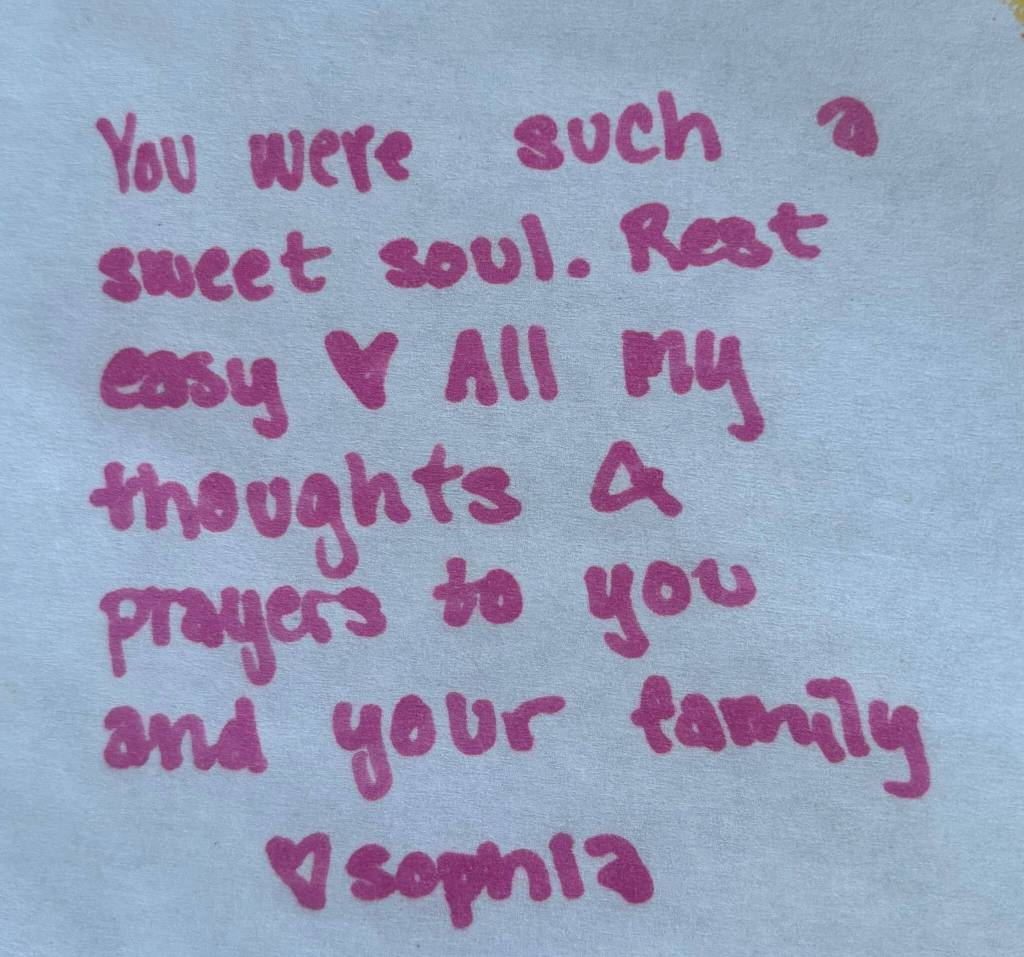 You were such a
sweet soul. Rest
easy ♥ All my
thoughts &
prayers to you
and your family
♥sophia